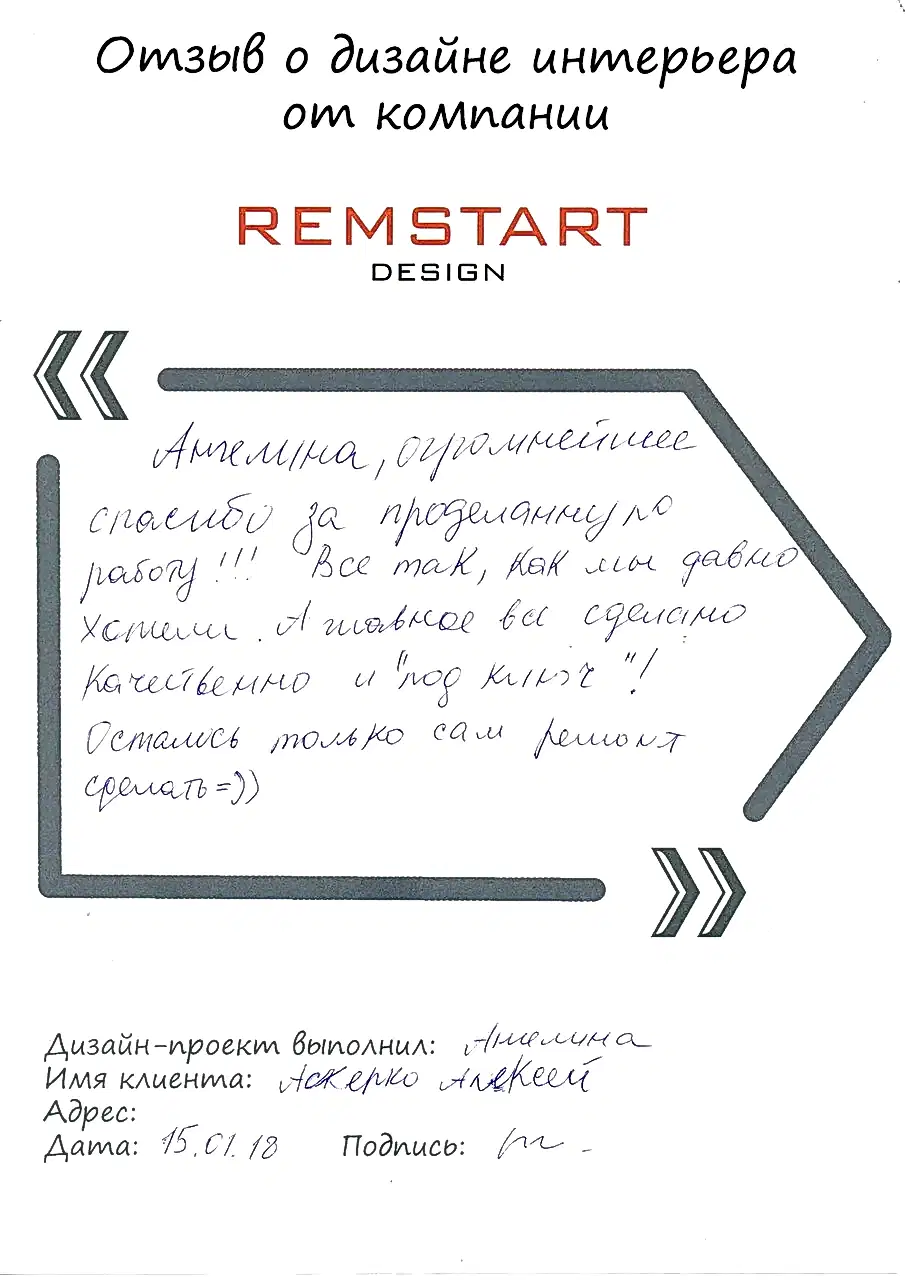 Отзыв о дизайне интерьера
от компании
REMSTART
DESIGN
Ангелина, огромнейшее
спасибо за проделанную
работу!!! Все так, как мы давно
хотели. А главное все сделано
качественно и "под ключ"!
Осталось только сам ремонт
сделать=))
Дизайн-проект выполнил: Ангелина
Имя клиента: Аскерко Алексей
Адрес:
Дата: 15.01.18 Подпись: